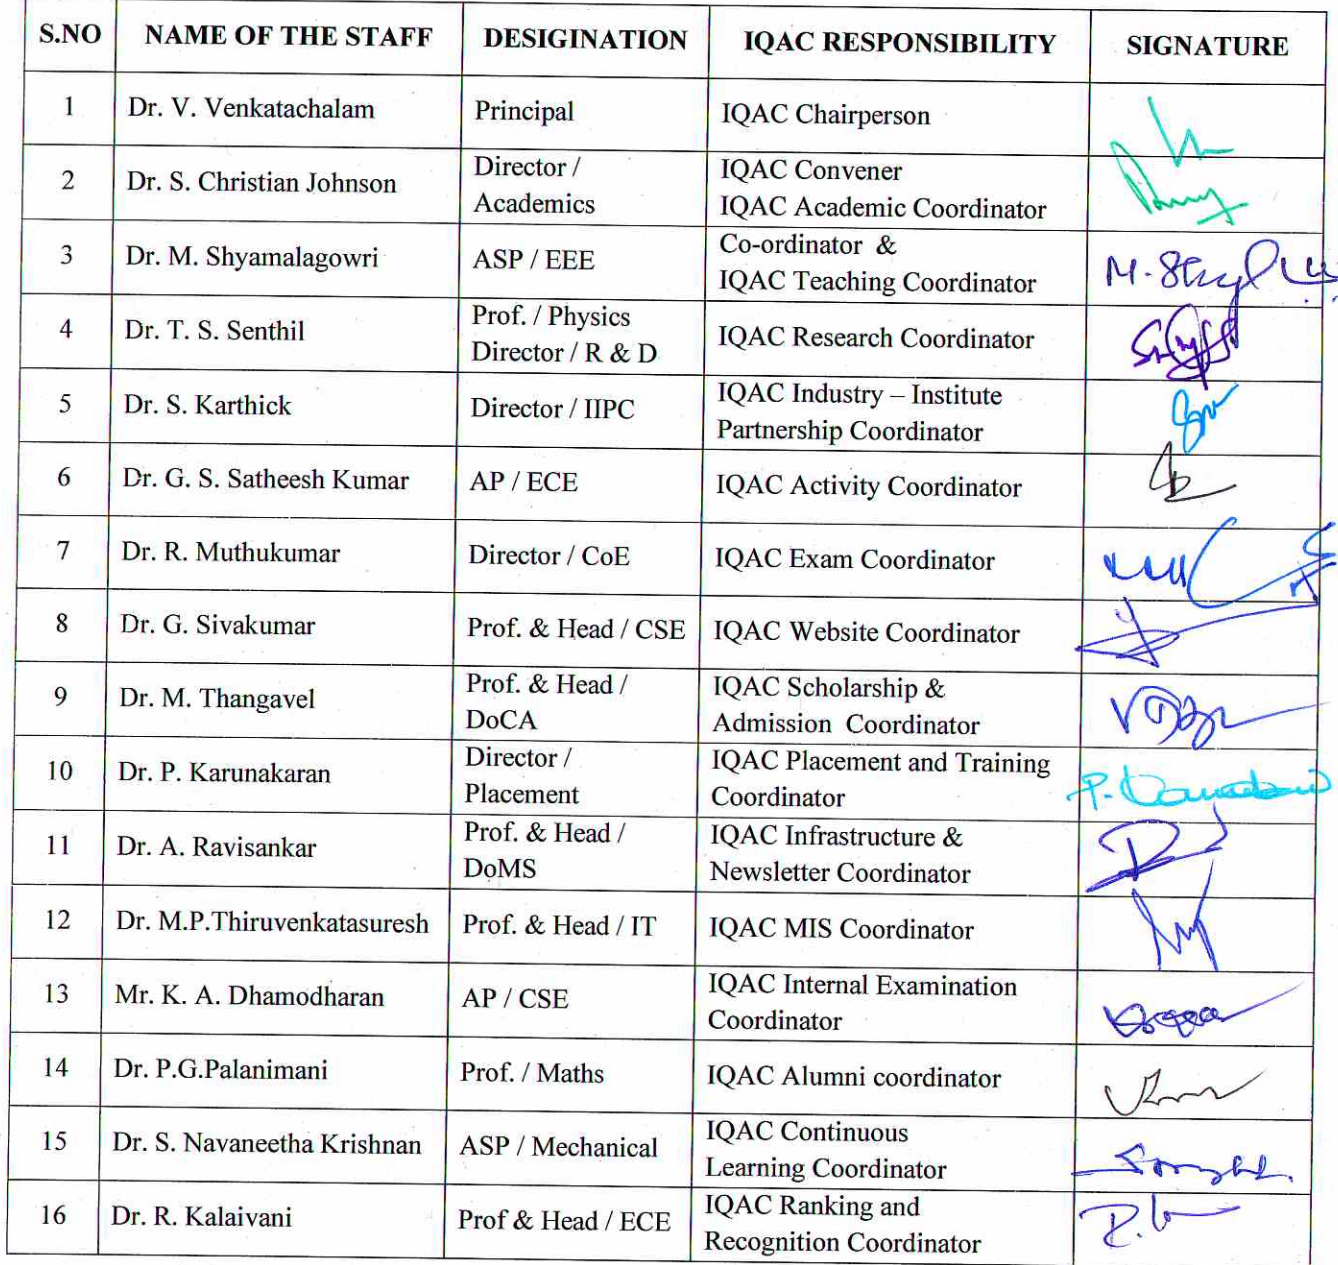 S.NO NAME OF THE STAFF DESIGINATION IQAC RESPONSIBILITY SIGNATURE
1 Dr. V. Venkatachalam Principal IQAC Chairperson
2 Dr. S. Christian Johnson Director / IQAC Convener
Academics IQAC Academic Coordinator
3 Dr. M. Shyamalagowri ASP / EEE Co-ordinator &
IQAC Teaching Coordinator
4 Dr. T. S. Senthil Prof. / Physics IQAC Research Coordinator
Director / R & D
5 Dr. S. Karthick Director / IIPC IQAC Industry – Institute
Partnership Coordinator
6 Dr. G. S. Satheesh Kumar AP / ECE IQAC Activity Coordinator
7 Dr. R. Muthukumar Director / CoE IQAC Exam Coordinator
8 Dr. G. Sivakumar Prof. & Head / CSE IQAC Website Coordinator
9 Dr. M. Thangavel Prof. & Head / IQAC Scholarship &
DoCA Admission Coordinator
10 Dr. P. Karunakaran Director / IQAC Placement and Training
Placement Coordinator
11 Dr. A. Ravisankar Prof. & Head / IQAC Infrastructure &
DoMS Newsletter Coordinator
12 Dr. M.P.Thiruvenkatasuresh Prof. & Head / IT IQAC MIS Coordinator
13 Mr. K. A. Dhamodharan AP / CSE IQAC Internal Examination
Coordinator
14 Dr. P.G.Palanimani Prof. / Maths IQAC Alumni coordinator
15 Dr. S. Navaneetha Krishnan ASP / Mechanical IQAC Continuous
Learning Coordinator
16 Dr. R. Kalaivani Prof & Head / ECE IQAC Ranking and
Recognition Coordinator